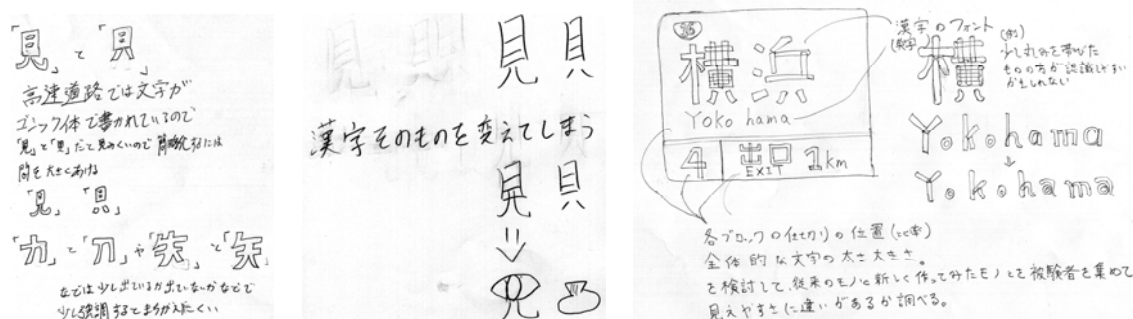 「見」と「貝」
高速道路では文字が
ゴシック体で書かれているので
「見」と「貝」だと見にくいので簡略化するには
間を大きくあける
「見」「貝」
「力」と「刀」や「失」と「矢」
などでは少し出ているか出ていないかなどで
少し強調するとまちがえにくい
見 貝
漢字そのものを変えてしまう
見 貝
16
横浜
Yokohama
4 出口 1km
EXIT
漢字のフォント
(数字)
(例)
横
少し丸みを帯びた
ものの方が認識しやすい
かもしれない
Yokohama
↓
Yokohama
各ブロックの仕切りの位置(比率)
全体的な文字の太さ大きさ。
を検討して、従来のモノと新しく作ってみたモノとを被験者を集めて
見えやすさに違いがあるか調べる。